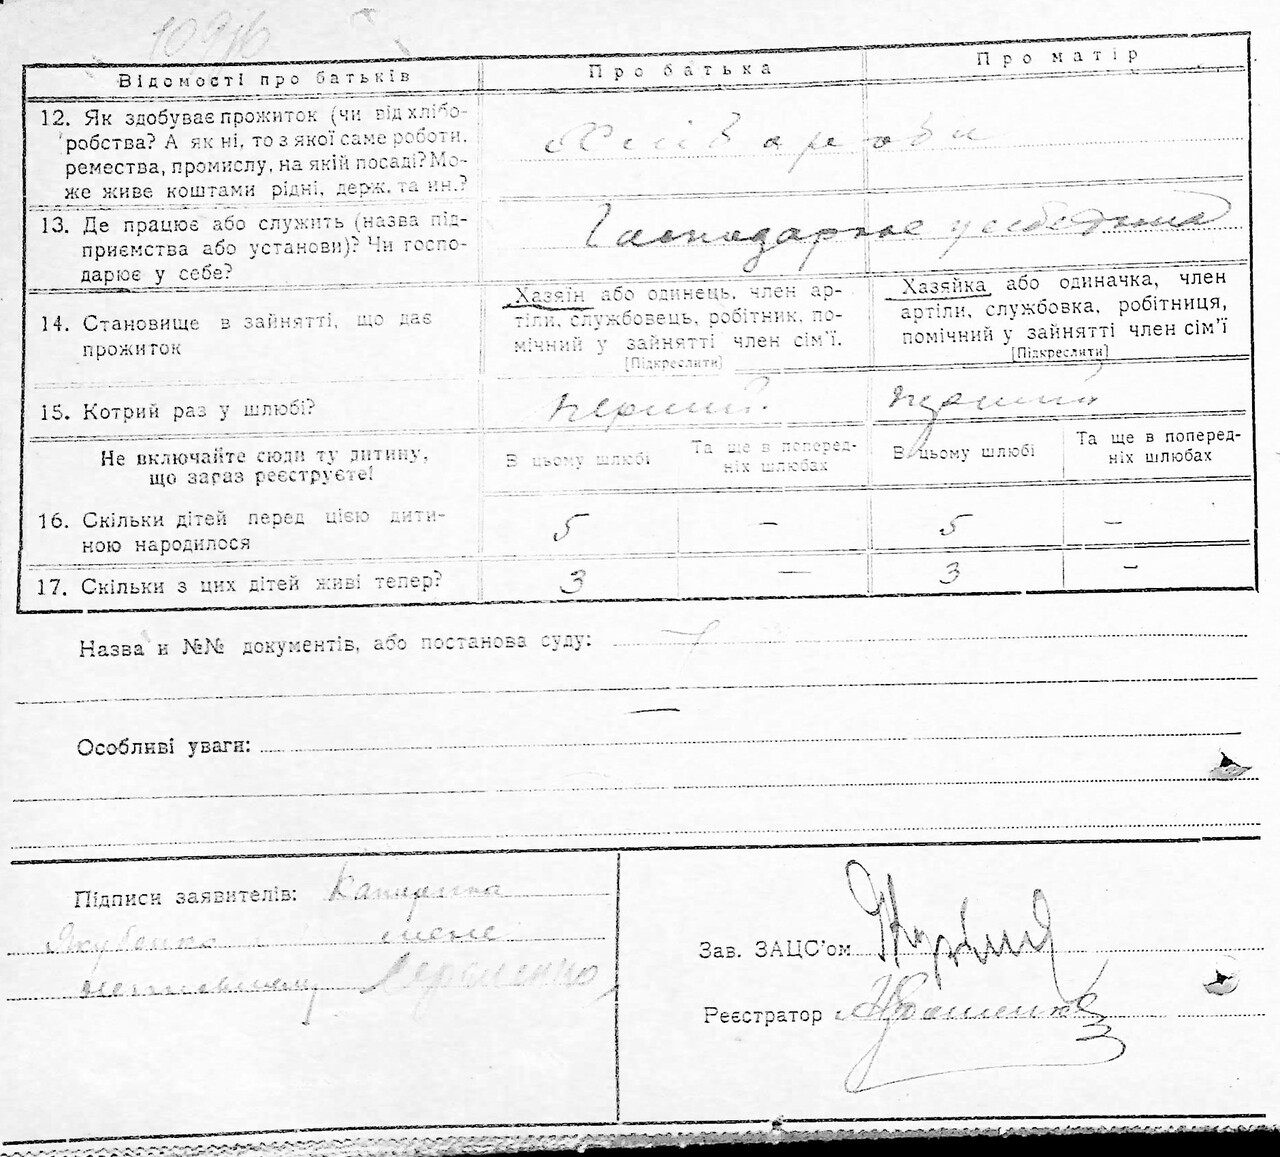 Відомості про батьків
Про батька
Про матір
12. Як здобуває прожиток (чи від хлібо-
робства? А як ні, то з якої саме роботи,
ремества, промислу, на якій посаді? Мо-
же живе коштами рідні, держ. та ин.?
13. Де працює або служить (назва під-
приємства або установи)? Чи госпо-
дарює у себе?
14. Становище в зайнятті, що дає
прожиток
Хазяїн або одинець, член ар-
тіли, службовець, робітник, по-
мічний у зайнятті член сім'ї.
[Підкреслити]
Хазяйка або одиначка, член
артіли, службовка, робітниця,
помічний у зайнятті член сім'ї
[Підкреслити]
15. Котрий раз у шлюбі?
первий
первий
Не включайте сюди ту дитину,
що зараз реєструєте!
В цьому шлюбі
Та ще в поперед-
ніх шлюбах
В цьому шлюбі
Та ще в поперед-
ніх шлюбах
16. Скільки дітей перед цією дити-
ною народилося
5 – 5 –
17. Скільки з цих дітей живі тепер?
3 – 3 –
Назва и №№ документів, або постанова суду:
—
Особливі уваги:
Підписи заявителів: Катерина
Якубенко
Зав. ЗАЦС'ом
Реєстратор